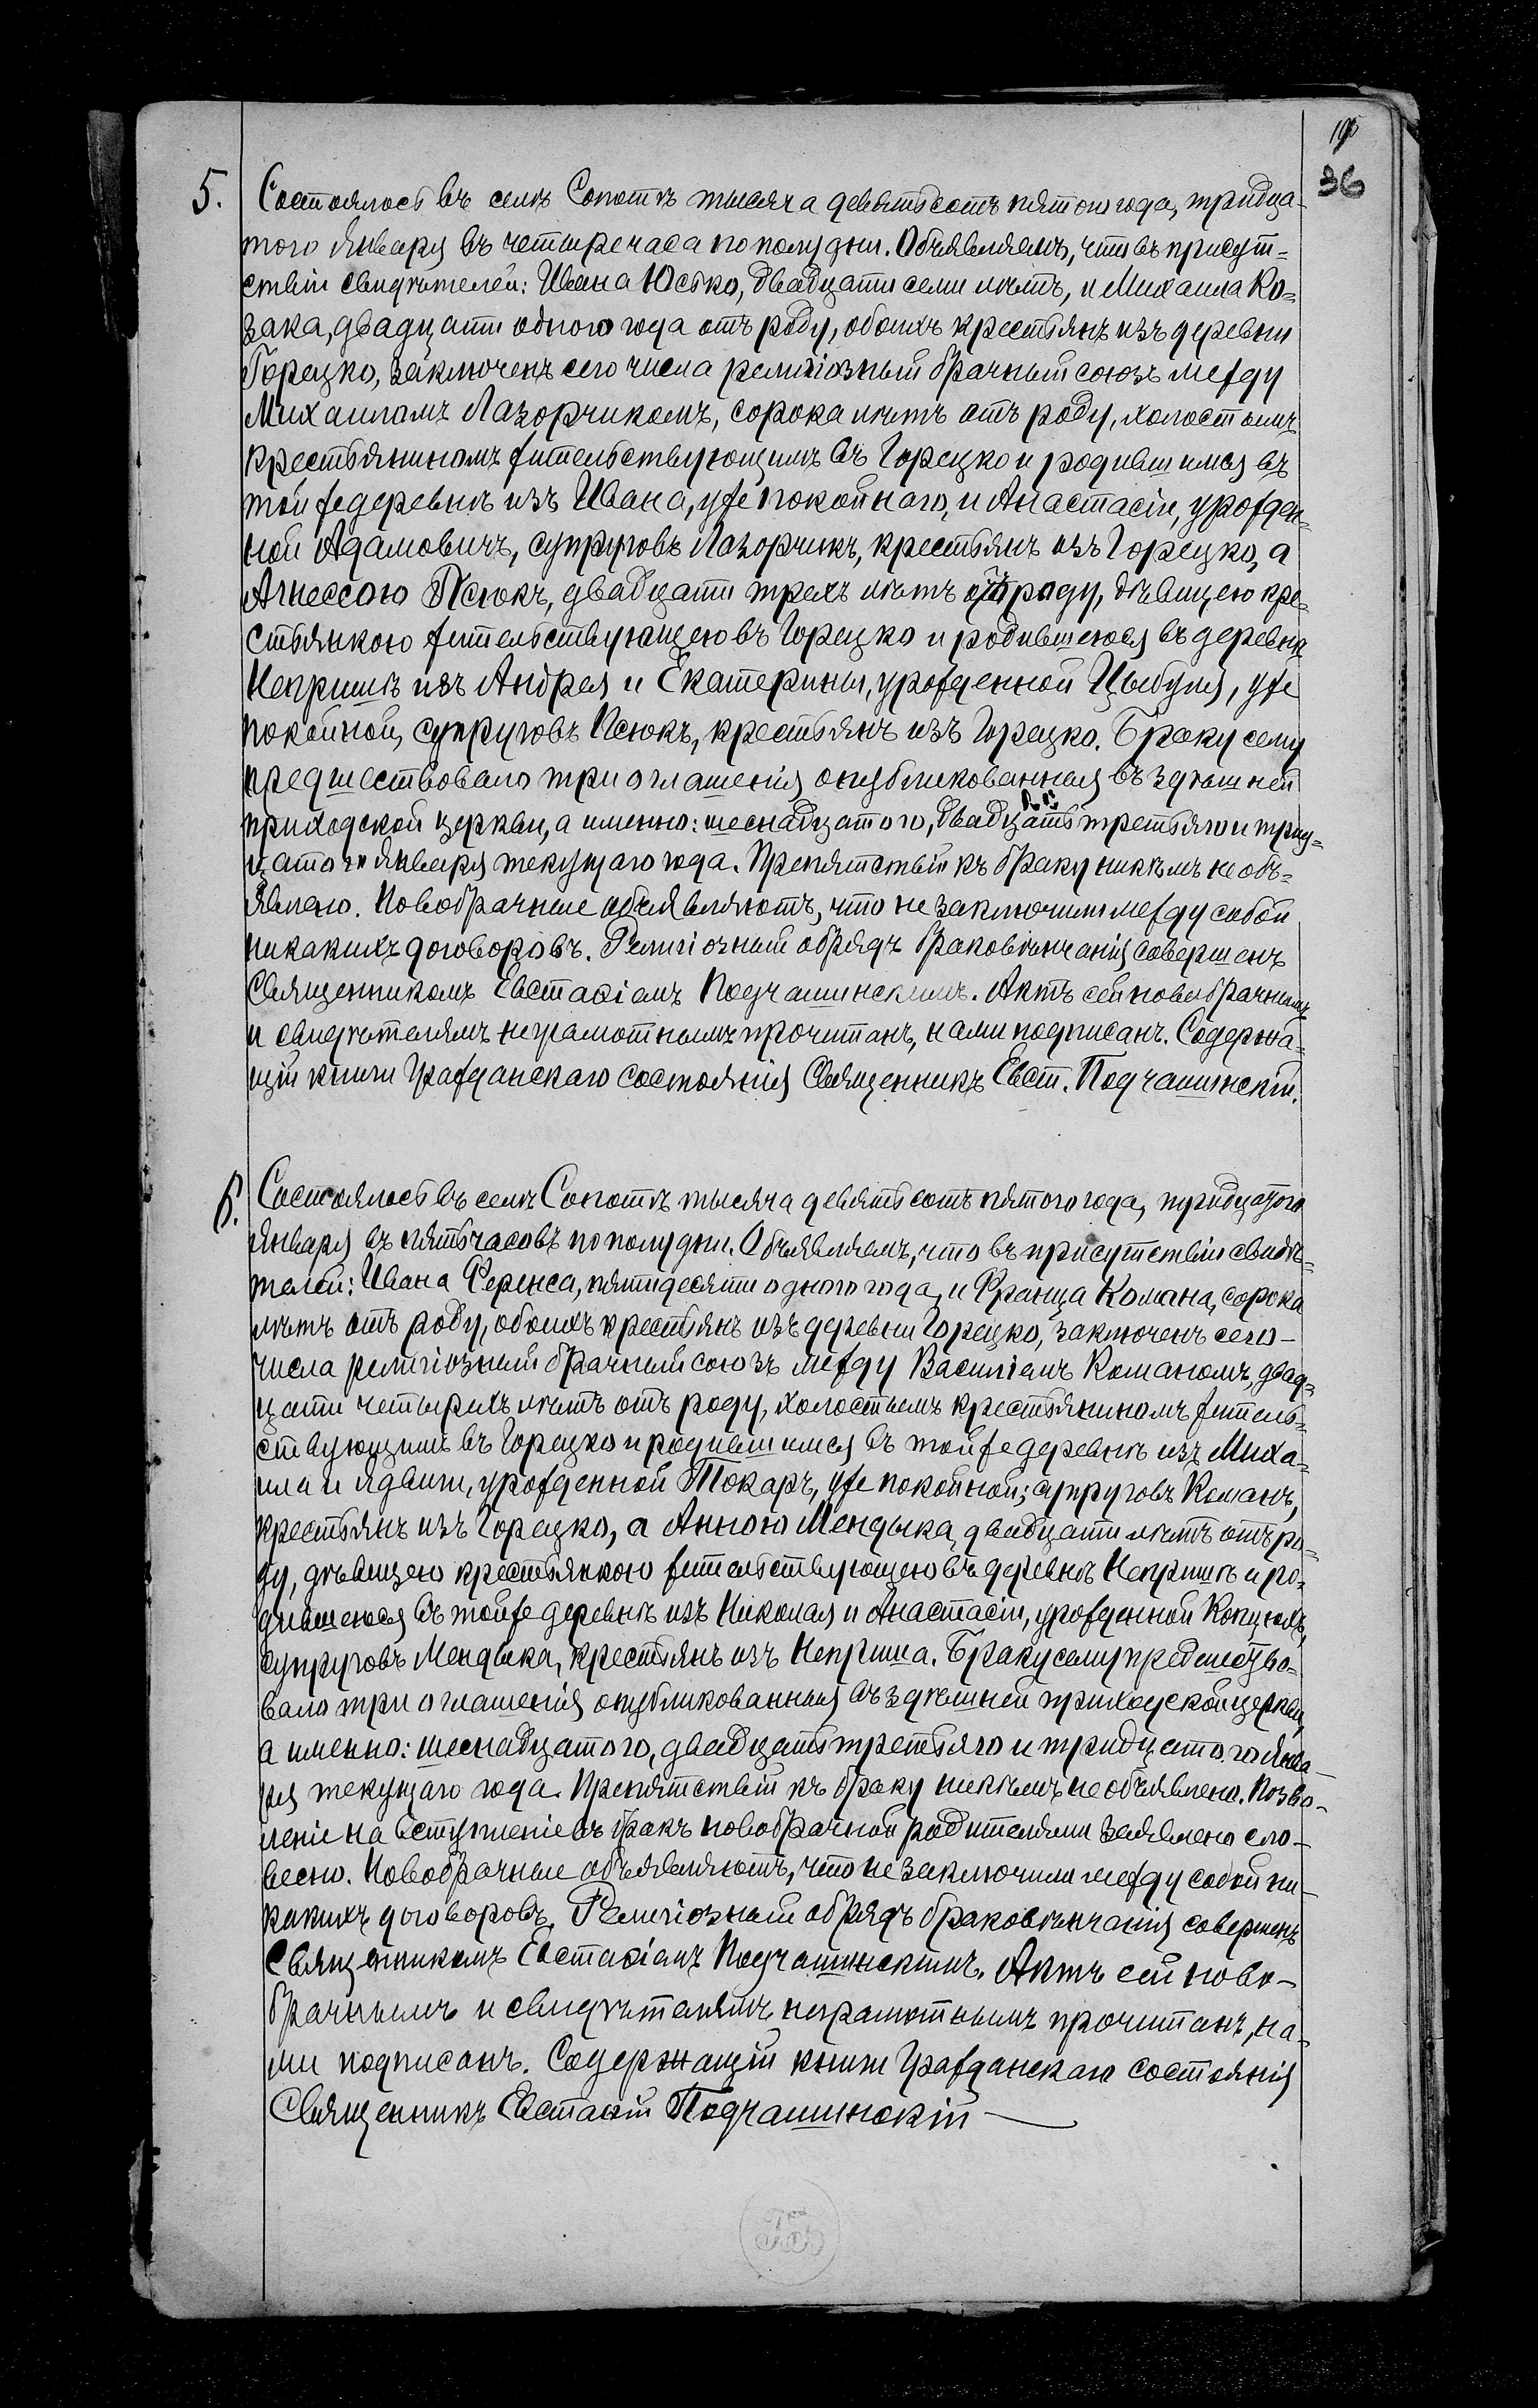 36
5. Состоялось въ селѣ Сопотѣ тысяча девятьсотъ пятого года, тридца-
того Января въ четыре часа по полудни. Объявляемъ, что въ присут=
ствіи свидѣтелей: Ивана Юсько, двадцати семи лѣтъ, и Михаила Ко=
зака, двадцати одного года отъ роду, обоихъ крестьянъ изъ деревни
Горецко, заключенъ сего числа религіозный брачный союзъ между
Михаиломъ Лазорчикомъ, сорока лѣтъ отъ роду, холостымъ
крестьяниномъ жительствующимъ въ Горецко и родившимся въ
той же деревнѣ изъ Ивана, уже покойнаго, и Анастасіи, урожден=
ной Адамовичъ, супруговъ Лазорчикъ, крестьянъ изъ Горецко, а
Агнессою Псюкъ, двадцати трехъ лѣтъ отъ роду, дѣвицею кре=
стьянкою жительствующею въ Горецко и родившеюся въ деревнѣ
Непришѣ изъ Андрея и Екатерины, урожденной Цыбуля, уже
покойной, супруговъ Псюкъ, крестьянъ изъ Горецко. Браку сему
предшествовало три оглашенія опубликованныя въ здѣшней
приходской церкви, а именно: шеснадцатого, двадцать третьяго и трид=
цатого Января текущаго года. Препятствій къ браку никѣмъ не объ=
явлено. Новобрачные объявляютъ, что не заключили между собой
никакихъ договоровъ. Религіозный обрядъ браковѣнчанія совершенъ
Священникомъ Евстафіемъ Подчашинскимъ. Актъ сей новобрачнымъ
и свидѣтелямъ неграмотнымъ прочитанъ, нами подписанъ. Содержа=
щій книги Гражданскаго состоянія Священникъ Евст. Подчашинскій.
6. Состоялось въ селѣ Сопотѣ тысяча девятьсотъ пятого года, тридцатого
Января въ пять часовъ по полудни. Объявляемъ, что въ присутствіи свидѣ=
телей: Ивана Ференса, пятидесяти одного года, и Франца Комана, сорока
лѣтъ отъ роду, обоихъ крестьянъ изъ деревни Горецко, заключенъ сего-
числа религіозный брачный союзъ между Василіемъ Команомъ, двад=
цати четырехъ лѣтъ отъ роду, холостымъ крестьяниномъ житель=
ствующимъ въ Горецко и родившимся въ той же деревнѣ изъ Миха=
ила и Ядвиги, урожденной Токаръ, уже покойной; супруговъ Команъ,
крестьянъ изъ Горецко, а Анною Мендыка, двадцати лѣтъ отъ ро=
ду, дѣвицею крестьянкою жительствующею въ деревнѣ Непришѣ и ро=
дившеюся въ той же деревнѣ изъ Николая и Анастасіи, урожденной Копцюхъ,
супруговъ Мендыка, крестьянъ изъ Неприша. Браку сему предшество=
вало три оглашенія опубликованныя въ здѣшней приходской церкви,
а именно: шеснадцатого, двадцать третьяго и тридцатого Янва-
ря текущаго года. Препятствій къ браку никѣмъ не объявлено. Позво-
леніе на вступленіе въ бракъ новобрачной родителями заявлено сло-
весно. Новобрачные объявляютъ, что не заключили между собой ни-
какихъ договоровъ. Религіозный обрядъ браковѣнчанія совершенъ
Священникомъ Евстафіемъ Подчашинскимъ. Актъ сей ново-
брачнымъ и свидѣтелямъ неграмотнымъ прочитанъ, на-
ми подписанъ. Содержащій книги Гражданскаго состоянія
Священникъ Евстафій Подчашинскій